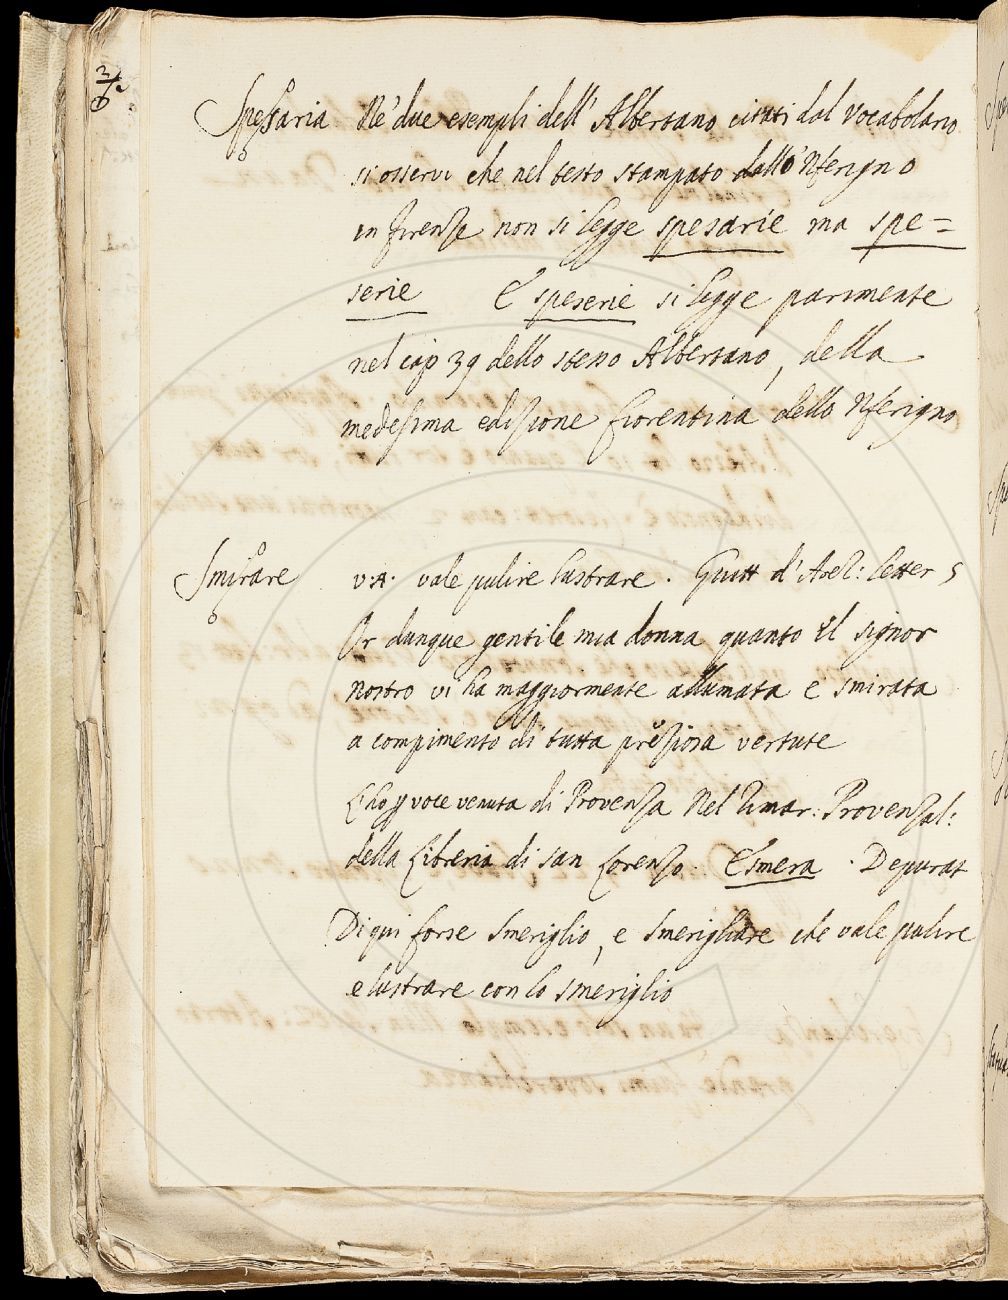 Spesaria Nè due esempli dell' Albertano citati dal Vocabolario
si osservi che nel testo stampato dall'o 'Nferigno
in Firenze non si legge spesarie ma spe=
serie E speserie si legge parimente
nel cap 39 dello stesso Albertano, della
medesima edizione fiorentina dello 'Nferigno
Smirare v.A. vale pulire lustrare. Guitt d'Arez: letter 5
Or dunque gentile mia donna quanto el signor
nostro vi ha maggiormente allumata e smirata
a compimento di tutta preziosa vertute
L'ho p voce venuta di Provenza Nel Rimar: Provenzal:
della Libreria di san Lorenzo. Esmera. Depurat
Di qui forse Smeriglio, e Smerigliare che vale pulire
e lustrare con lo smeriglio